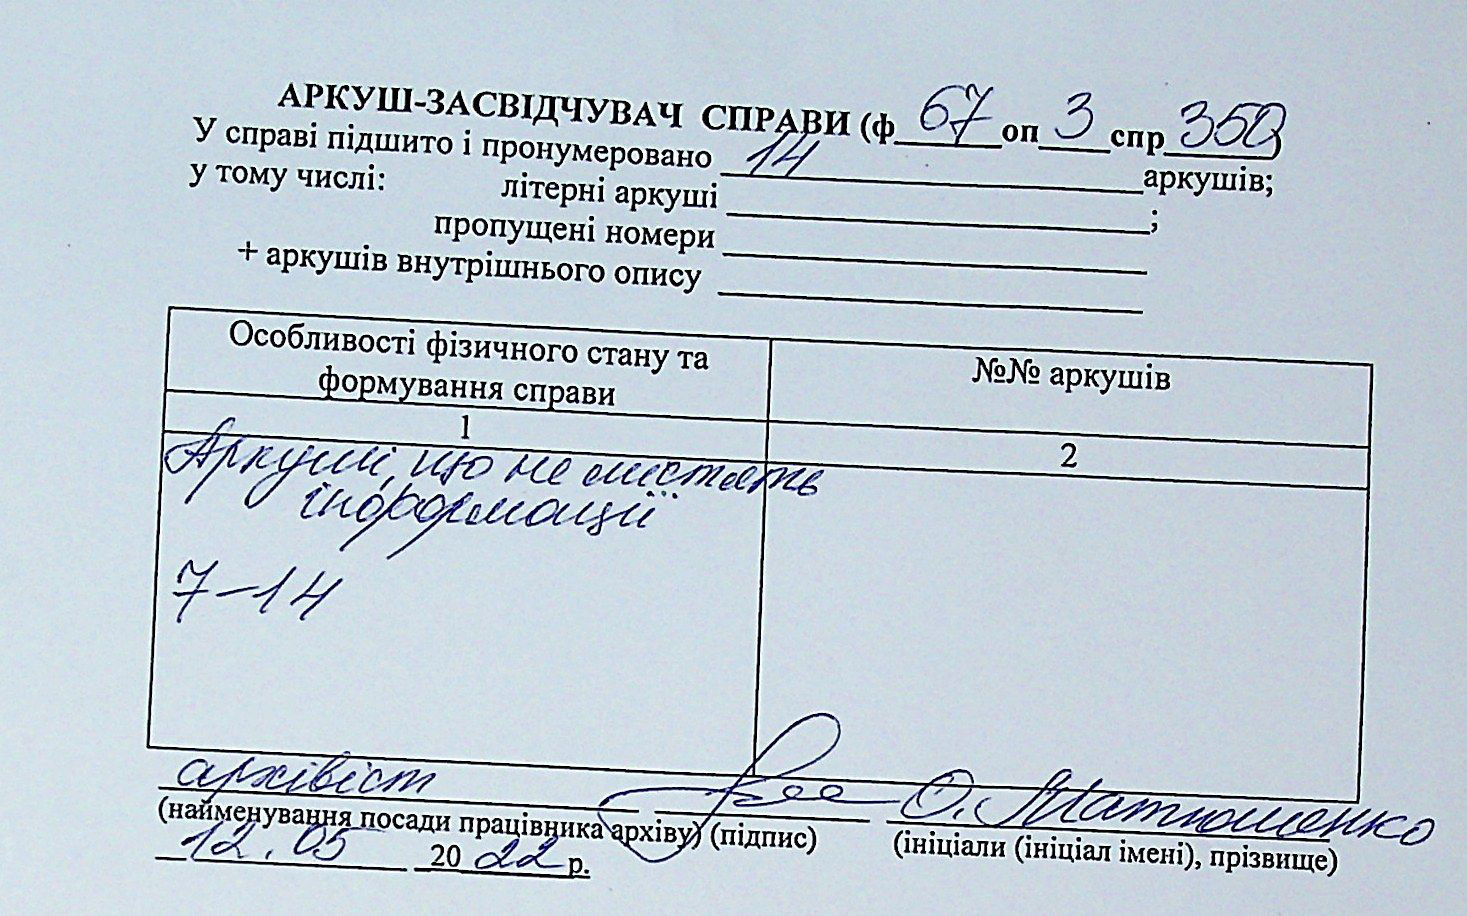 АРКУШ-ЗАСВІДЧУВАЧ СПРАВИ (ф 67 оп 3 спр 350)
У справі підшито і пронумеровано 14 аркушів;
у тому числі: літерні аркуші ;
пропущені номери
+ аркушів внутрішнього опису
Особливості фізичного стану та формування справи
№№ аркушів
1
2
Аркуші, що не містять
інформації
7-14
архівіст О. Матюшенко
(найменування посади працівника архіву) (підпис) (ініціали (ініціал імені), прізвище)
12.05 2022 р.